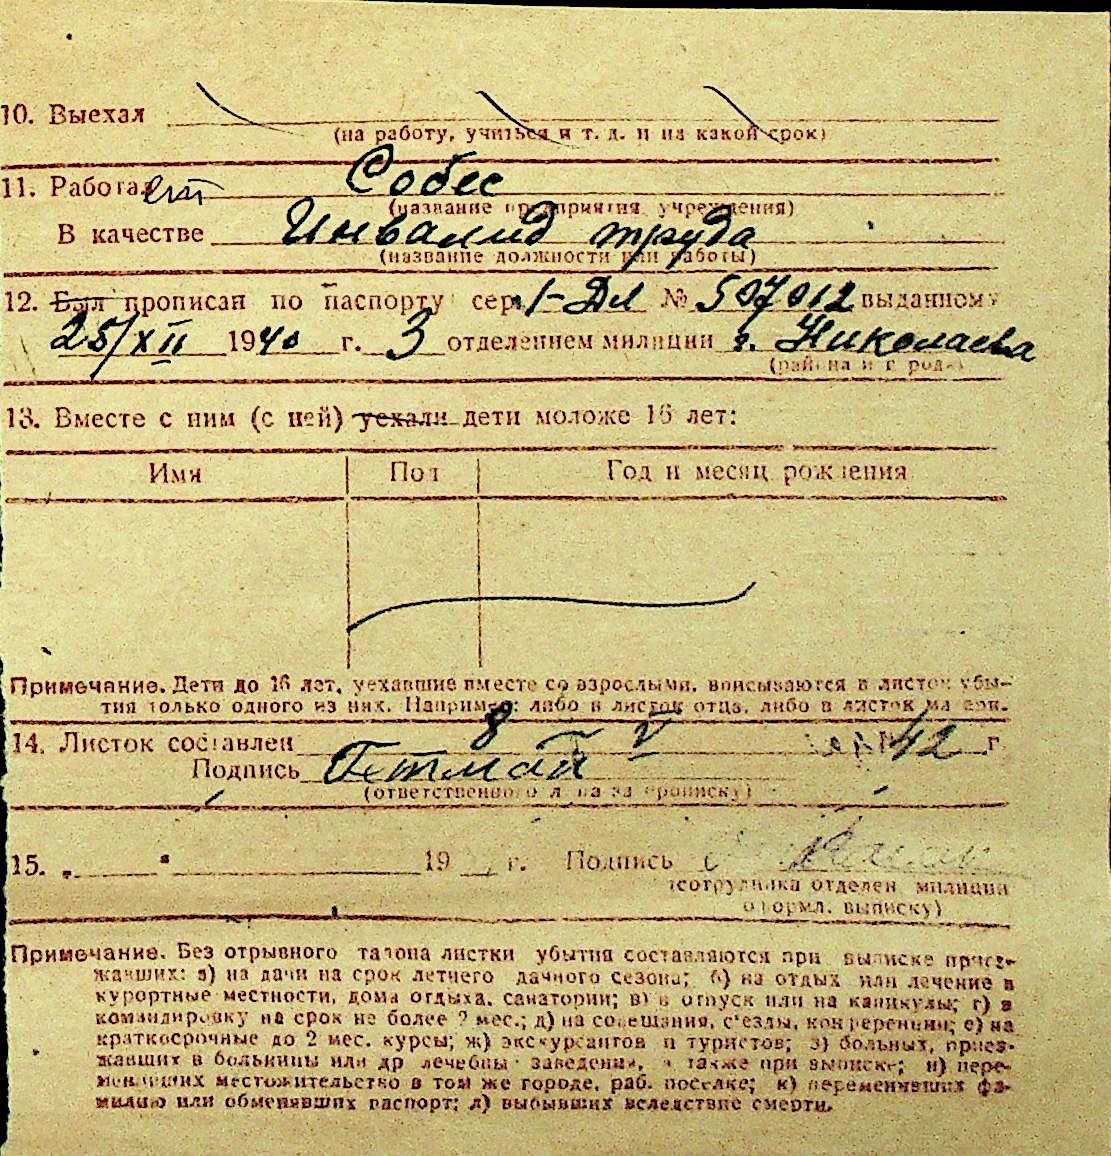 10. Выехал
(на работу, учиться и т. д. и на какой срок)
11. Работает Собес
(название предприятия, учреждения)
В качестве Инвалид труда
(название должности или работы)
12. Был прописан по паспорту сер. 1-Дл № 507012 выданному
25/XII 1940 г. 3 отделением милиции г. Николаева
(района и города)
13. Вместе с ним (с ней) уехали дети моложе 16 лет:
Имя Пол Год и месяц рождения
Примечание. Дети до 16 лет, уехавшие вместе со взрослыми, вписываются в листок убы-
тия только одного из них. Например: либо в листок отца, либо в листок матери.
14. Листок составлен 8 V 42 г.
Подпись
(ответственного лица за прописку)
15. „ “ 19 г. Подпись
(сотрудника отделен. милиции
оформл. выписку)
Примечание. Без отрывного талона листки убытия составляются при выписке приез-
жавших: а) на дачи на срок летнего дачного сезона; б) на отдых или лечение в
курортные местности, дома отдыха, санатории; в) в отпуск или на каникулы; г) в
командировку на срок не более 2 мес.; д) на совещания, с'езды, конференции; е) на
краткосрочные до 2 мес. курсы; ж) экскурсантов и туристов; з) больных, приез-
жавших в больницы или др лечебны заведения, а также при выписке; и) пере-
менивших местожительство в том же городе, раб. поселке; к) переменивших фа-
милию или обменявших паспорт; л) выбывших вследствие смерти.